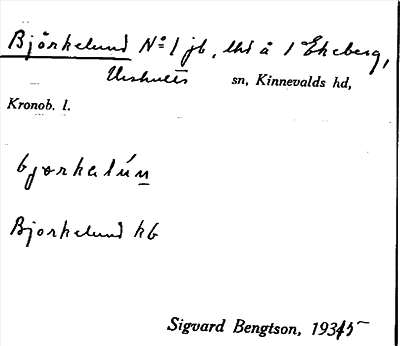 Björkelund No 1 jb, lht å 1 Ekeberg,
Urshults sn, Kinnevalds hd,
Kronob. l.
bjorkelún
Björkelund hb
Sigvard Bengtson, 1935